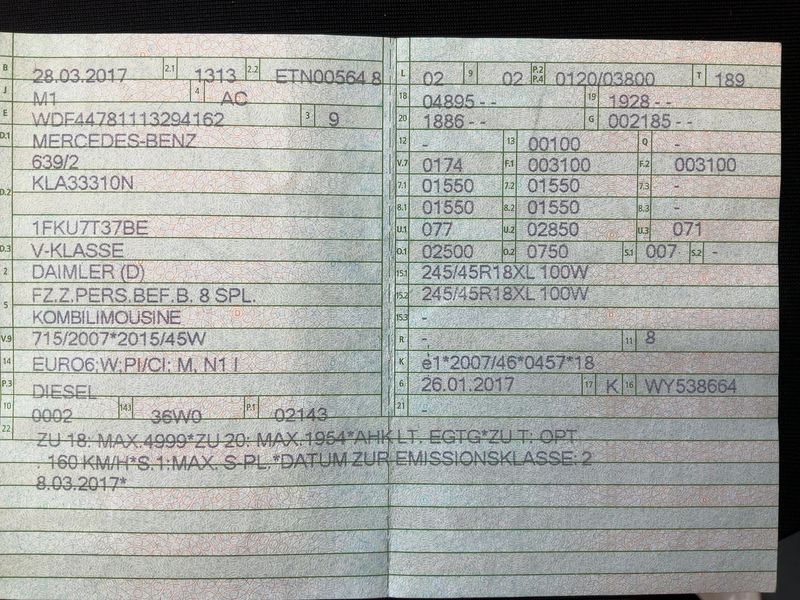 B 28.03.2017 2.1 1313 2.2 ETN00564 8
J M1 4 AC
E WDF44781113294162 3 9
D.1 MERCEDES-BENZ
639/2
D.2 KLA33310N
1FKU7T37BE
D.3 V-KLASSE
2 DAIMLER (D)
5 FZ.Z.PERS.BEF.B. 8 SPL.
KOMBILIMOUSINE
V.9 715/2007*2015/45W
14 EURO6;W;PI/CI; M, N1 I
P.3 DIESEL
10 0002 14.1 36W0 P.1 02143
L 02 9 02 P.2 P.4 0120/03800 T 189
18 04895 - - 19 1928 - -
20 1886 - - G 002185 - -
12 - 13 00100 Q -
V.7 0174 F.1 003100 F.2 003100
7.1 01550 7.2 01550 7.3 -
8.1 01550 8.2 01550 8.3 -
U.1 077 U.2 02850 U.3 071
O.1 02500 O.2 0750 S.1 007 S.2 -
15.1 245/45R18XL 100W
15.2 245/45R18XL 100W
15.3 -
R - 11 8
K e1*2007/46*0457*18
6 26.01.2017 17 K 16 WY538664
21 -
22 ZU 18: MAX.4999*ZU 20: MAX.1954*AHK LT. EGTG*ZU T: OPT
. 160 KM/H*S.1:MAX. S-PL.*DATUM ZUR EMISSIONSKLASSE: 2
8.03.2017*